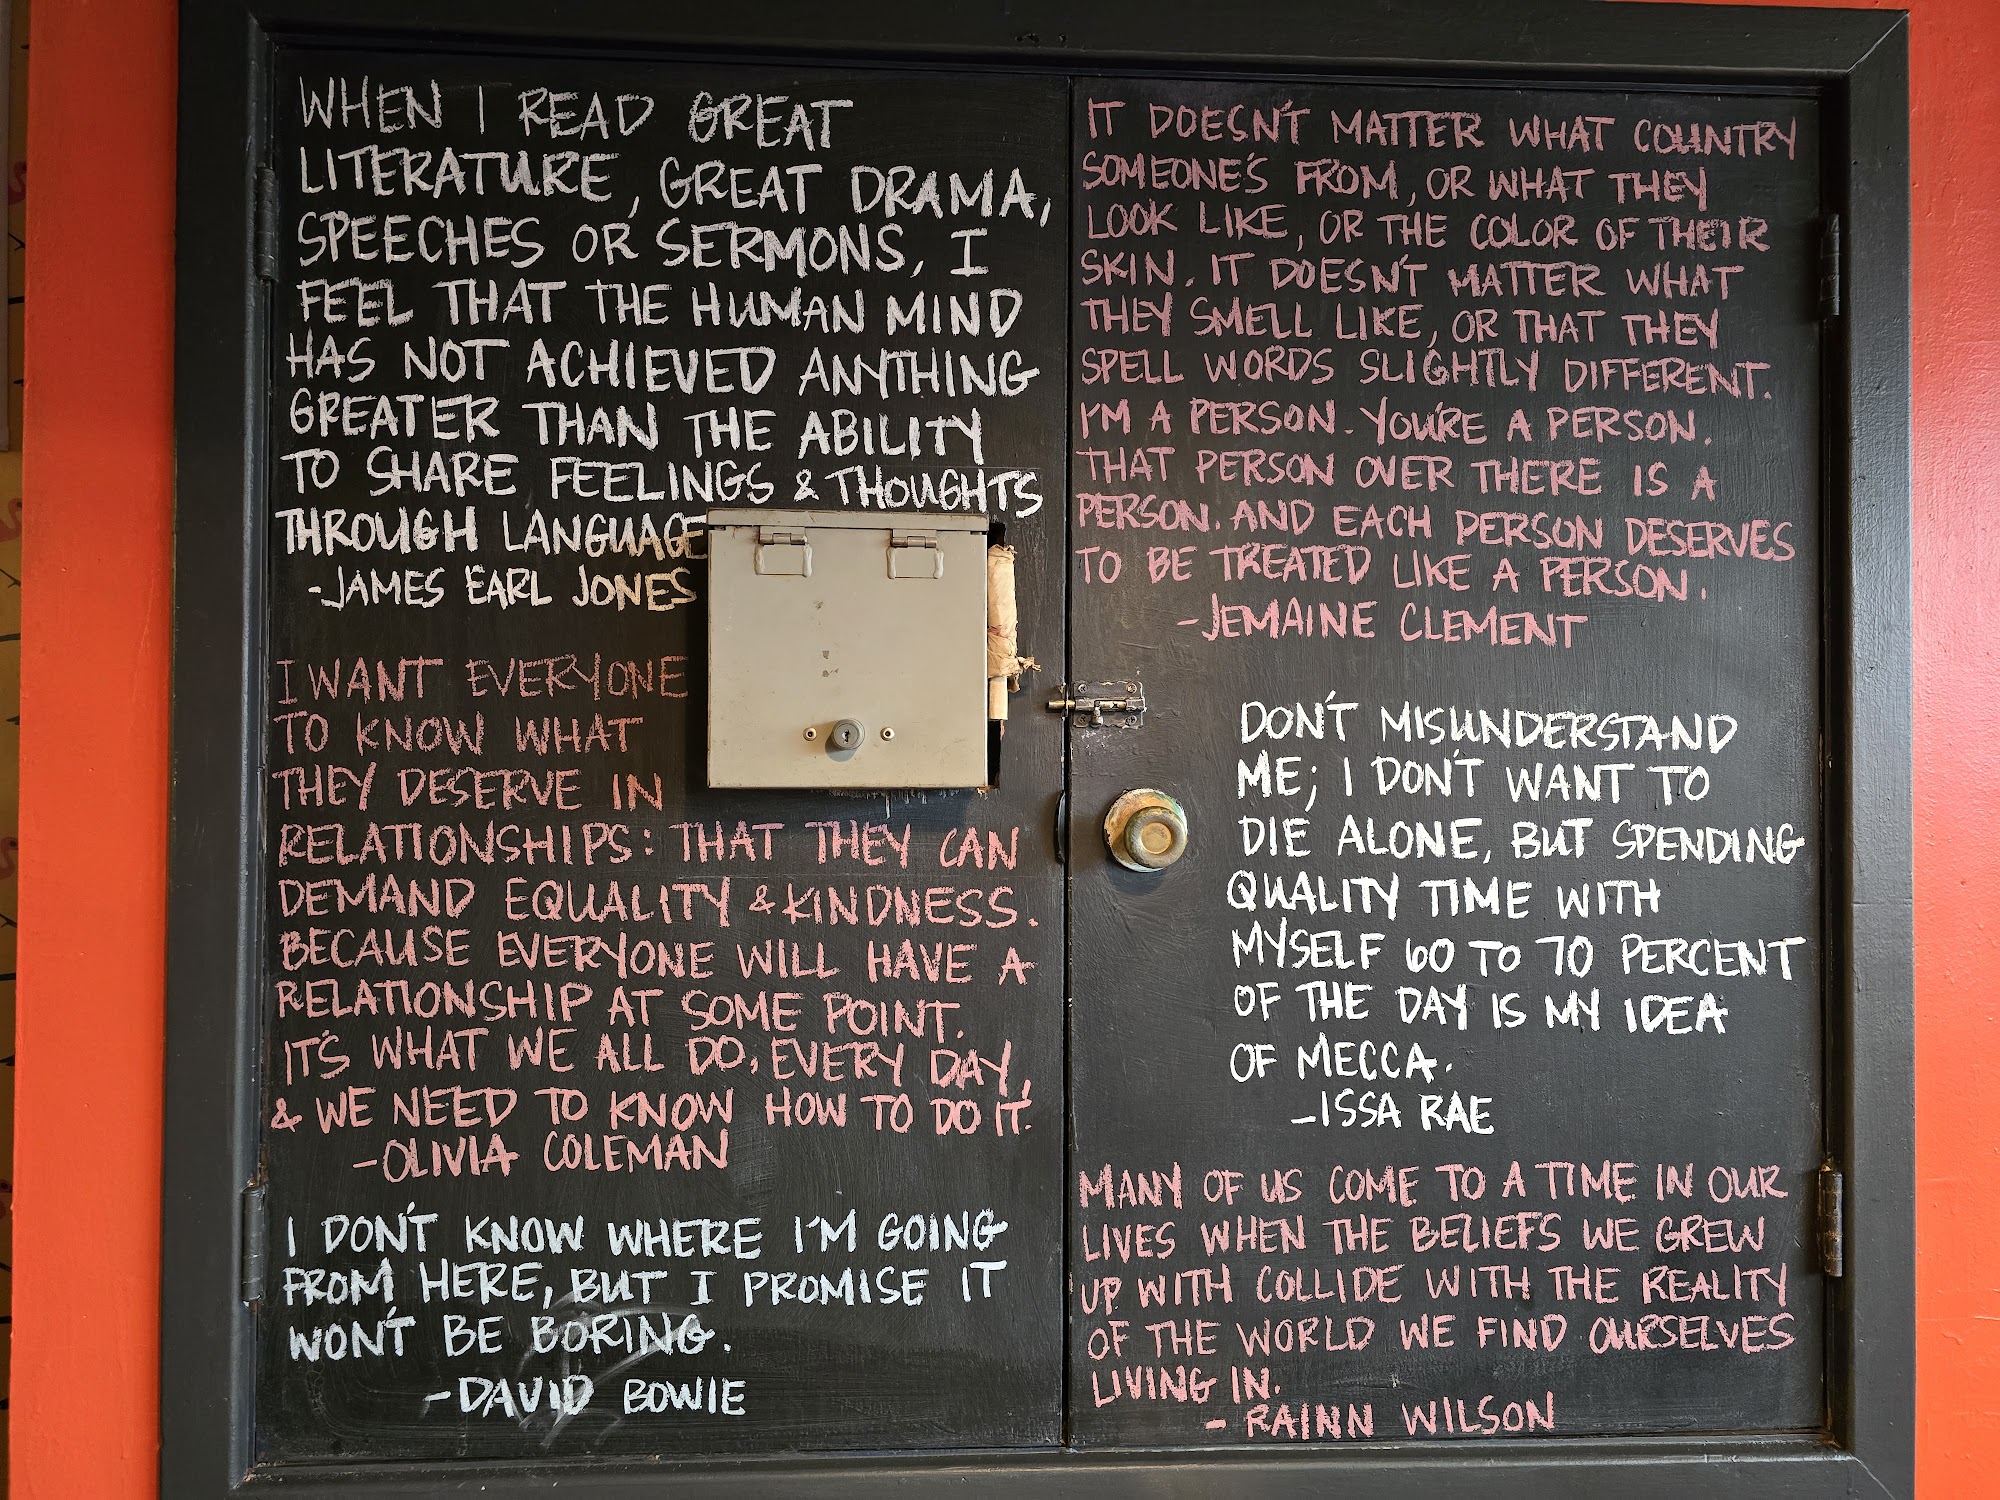 WHEN I READ GREAT
LITERATURE, GREAT DRAMA,
SPEECHES OR SERMONS, I
FEEL THAT THE HUMAN MIND
HAS NOT ACHIEVED ANYTHING
GREATER THAN THE ABILITY
TO SHARE FEELINGS & THOUGHTS
THROUGH LANGUAGE
-JAMES EARL JONES
I WANT EVERYONE
TO KNOW WHAT
THEY DESERVE IN
RELATIONSHIPS: THAT THEY CAN
DEMAND EQUALITY & KINDNESS.
BECAUSE EVERYONE WILL HAVE A
RELATIONSHIP AT SOME POINT.
IT'S WHAT WE ALL DO, EVERY DAY,
& WE NEED TO KNOW HOW TO DO IT.
-OLIVIA COLEMAN
I DON'T KNOW WHERE I'M GOING
FROM HERE, BUT I PROMISE IT
WON'T BE BORING.
-DAVID BOWIE
IT DOESN'T MATTER WHAT COUNTRY
SOMEONE'S FROM, OR WHAT THEY
LOOK LIKE, OR THE COLOR OF THEIR
SKIN. IT DOESN'T MATTER WHAT
THEY SMELL LIKE, OR THAT THEY
SPELL WORDS SLIGHTLY DIFFERENT.
I'M A PERSON. YOU'RE A PERSON.
THAT PERSON OVER THERE IS A
PERSON. AND EACH PERSON DESERVES
TO BE TREATED LIKE A PERSON.
-JEMAINE CLEMENT
DON'T MISUNDERSTAND
ME; I DON'T WANT TO
DIE ALONE, BUT SPENDING
QUALITY TIME WITH
MYSELF 60 TO 70 PERCENT
OF THE DAY IS MY IDEA
OF MECCA.
-ISSA RAE
MANY OF US COME TO A TIME IN OUR
LIVES WHEN THE BELIEFS WE GREW
UP WITH COLLIDE WITH THE REALITY
OF THE WORLD WE FIND OURSELVES
LIVING IN.
- RAINN WILSON